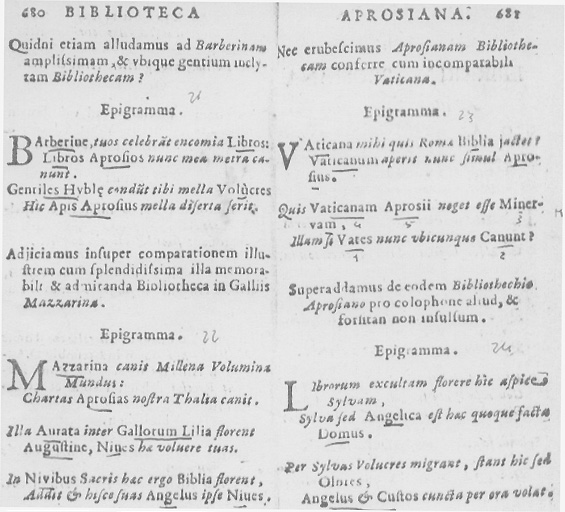 680 BIBLIOTECA
Quidni etiam alludamus ad Barberinam
amplissimam, & vbique gentium incly-
tam Bibliothecam?
21
Epigramma.
BArberine, tuos celebrāt encomia Libros:
Libros Aprosios nunc mea metra ca-
nunt.
Gentiles Hyblę condūt tibi mella Volucres
Hic Apis Aprosius mella diserta serit.
Adjiciamus insuper comparationem illu-
strem cum splendidissima illa memora-
bili & admiranda Bibliotheca in Galliis
Mazzarina.
Epigramma. 22
MAzzarina canit Millena Volumina
Mundus:
Chartas Aprosias nostra Thalia canit.
Illa Aurata inter Gallorum Lilia florent
Augustine, Nives hæ voluere tuas.
In Nivibus Sacris hac ergo Biblia florent,
Addit & hisce suas Angelus ipse Nives.
APROSIANA. 681
Nec erubescimus Aprosianam Bibliothe-
cam conferre cum incomparabili
Vaticana.
Epigramma. 23
VAticana mihi quis Roma Biblia jactet?
Vaticanum aperit nunc simul Apro-
sius.
Quis Vaticanam Aprosii neget esse Miner-
vam, 4 5 3
Illam si Vates nunc vbicunque Canunt?
1 2
Superaddamus de eodem Bibliothechio
Aprosiano pro colophone aliud, &
forsitan non insulsum.
Epigramma. 24
LIbrorum excultam florere hic aspice
Sylvam,
Sylva sed Angelica est hac quoque facta
Domus.
Per Sylvas Volucres migrant, stant hic sed
Olores,
Angelus & Custos cuncta per ora volat.